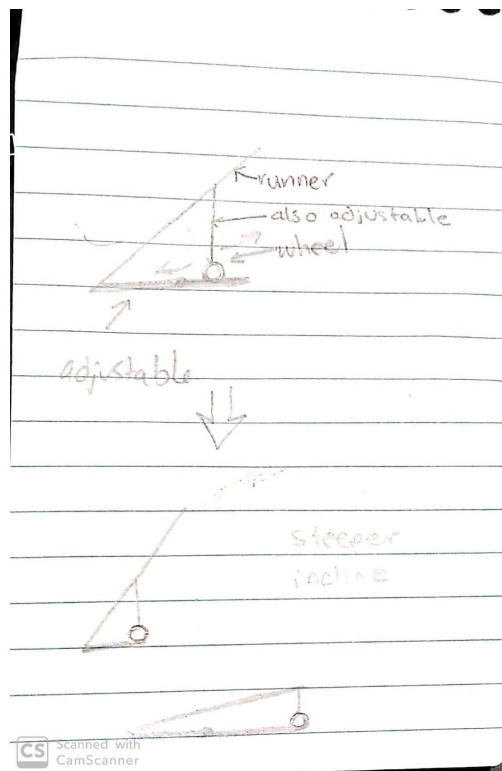 runner
also adjustable
wheel
adjustable
steeper
incline
CS Scanned with
CamScanner